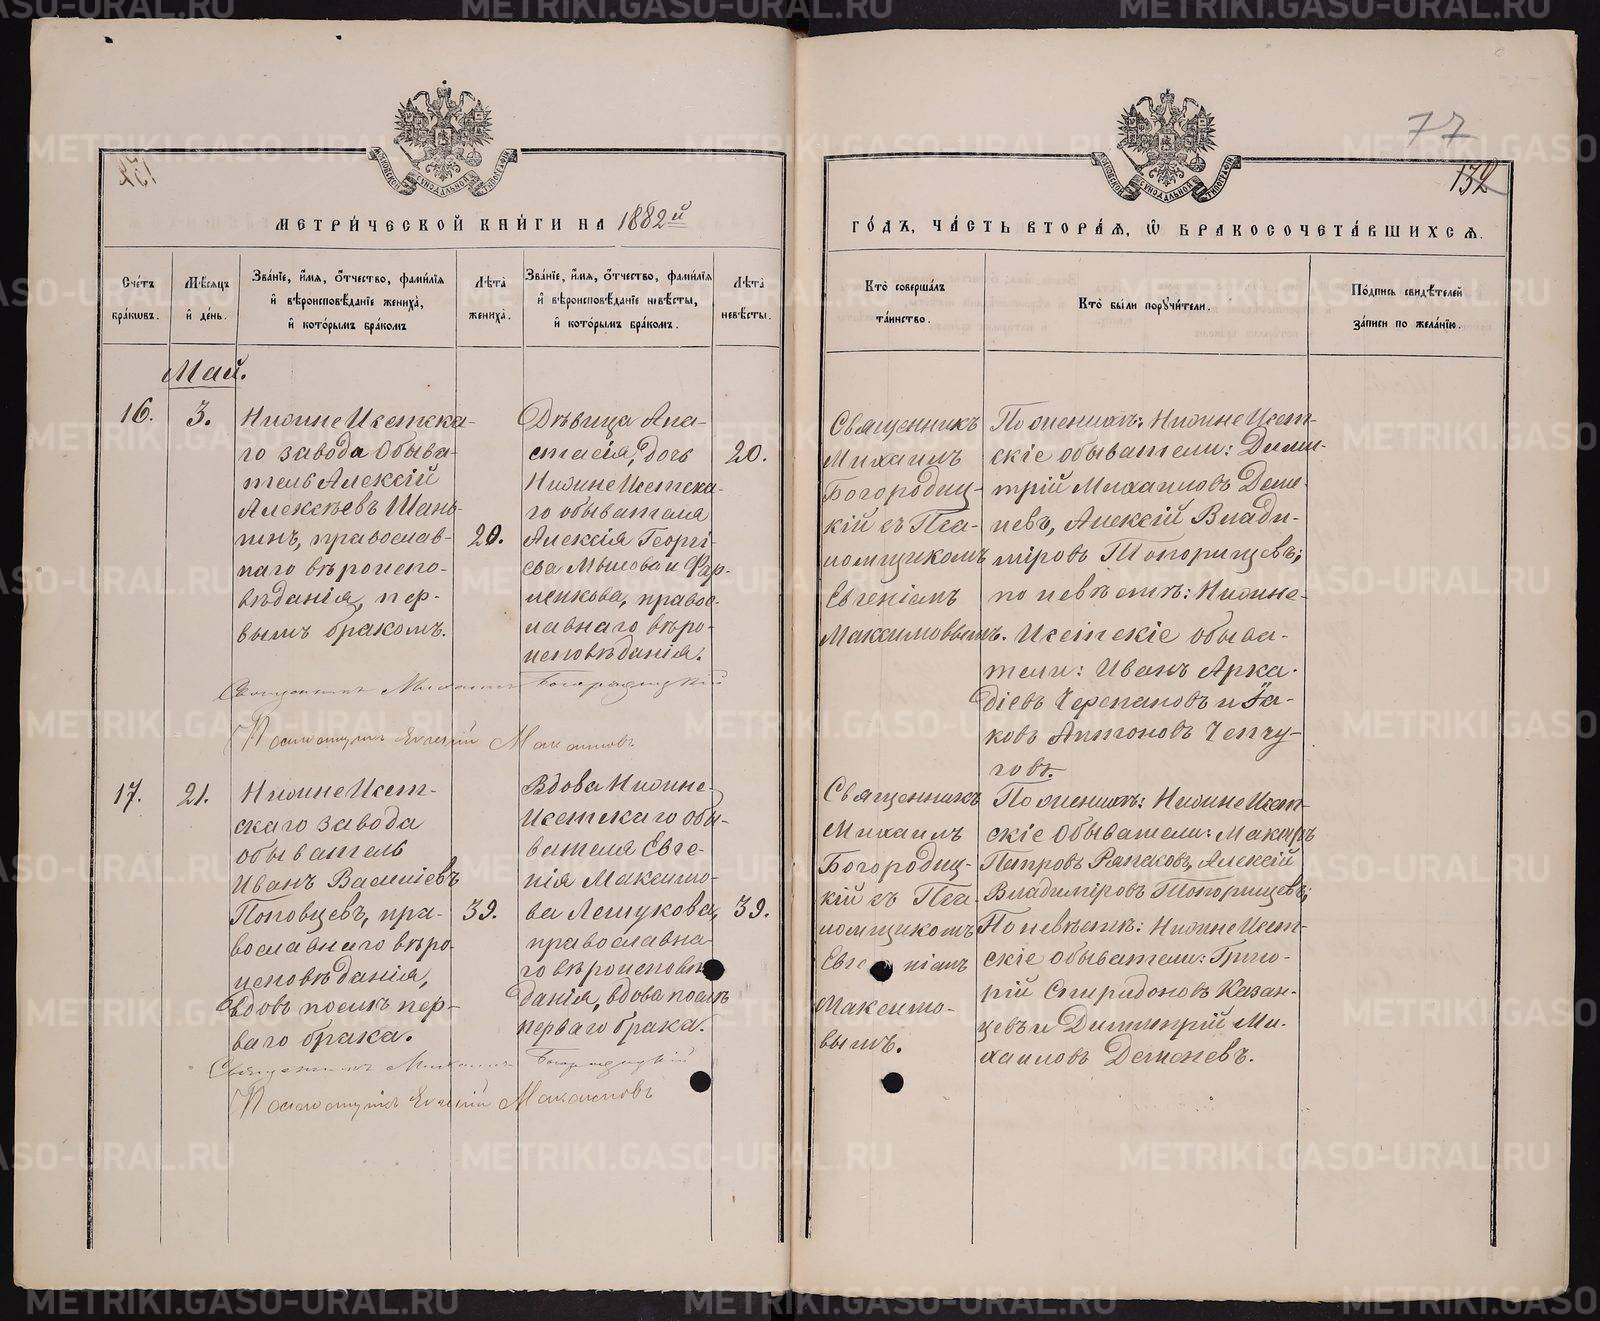 МЕТРИ́ЧЕСКОЙ КНИ́ГИ НА 1882й
Сче́тъ бра́кωвъ.
Мѣ́сяцъ и҆ де́нь.
Зва́нїе, и҆́мя, ѻ҆́тчество, фами́лїя и҆ вѣроисповѣ́данїе жениха̀, и҆ кото́рымъ бра́комъ
Лѣ́та жениха̀.
Зва́нїе, и҆́мя, ѻ҆́тчество, фами́лїя и҆ вѣроисповѣ́данїе невѣ́сты, и҆ кото́рымъ бра́комъ.
Лѣ́та невѣ́сты.
Май.
16.
3.
НижнеИсетска-
го завода Обыва-
тель Алексій
Алексѣевъ Шань-
гинъ, православ-
наго вѣроиспо-
вѣданія, пер-
вымъ бракомъ.
20.
Дѣвица Ана-
стасія, дочь
НижнеИсетска-
го обывателя
Алексія Георгі-
ева Мыловаи
православ-
лавнаго вѣро-
исповѣданія.
20.
Священникъ Михаилъ Богородицкій
Псаломщикъ Евгеній Максимовъ
17.
21.
НижнеИсет-
скаго завода
обыватель
Иванъ Василіевъ
Поповцевъ, пра-
вославнаго вѣро-
исповѣданія,
Вдовъ послѣ пер-
ваго брака.
39.
Вдова Нижне-
Исетскаго обы-
вателя Евге-
нія Максимо-
ва Лешукова,
православна-
го вѣроисповѣ-
данія, вдова послѣ
перваго брака.
39.
Священникъ Михаилъ Богородицкій
Псаломщикъ Евгеній Максимовъ
77
132
ГО́ДЪ, ЧА́СТЬ ВТОРА́Я, Ѿ БРАКОСОЧЕТА́ВШИХСЯ.
Кто̀ соверша́лъ та́инство.
Кто̀ бы́ли поручи́тели.
По́дпись свидѣ́телей за́писи по жела́нїю.
Священникъ
Михаилъ
Богородиц-
кій съ Пса-
ломщикомъ
Евгеніемъ
Максимовымъ.
По женихѣ: НижнеИсет-
скіе обыватели: Дими-
трій Михаиловъ Деме-
невъ, Алексій Влади-
міровъ Топорищевъ;
по невѣстѣ: Нижне-
Исетскіе обыва-
тели: Иванъ Арка-
діевъ Черепановъ и Іа-
ковъ Антоновъ Чепчу-
говъ.
Священникъ
Михаилъ
Богородиц-
кій съ Пса-
ломщикомъ
Евгеніемъ
Максимо-
вымъ.
По женихѣ: НижнеИсет-
скіе Обыватели:
Петровъ Алексій
Владиміровъ Топорищевъ;
По невѣстѣ: НижнеИсет-
скіе обыватели: Григо-
рій Спиридоновъ Казан-
цевъ и Димитрій Ми-
хаиловъ Деменевъ.
METRIKI.GASO-URAL.RU